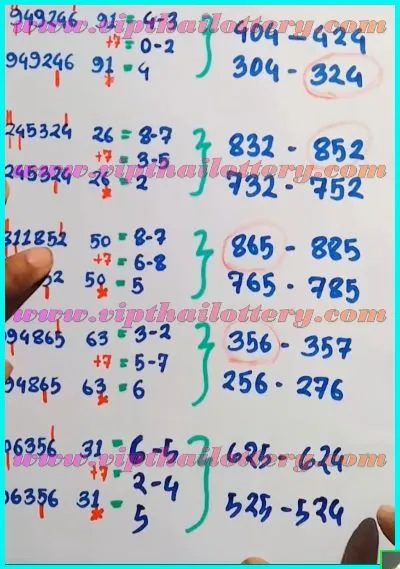 www.vipthailottery.com
949246 91 = 4-3 404 - 424
+7 = 0-2
949246 91 = 4 304 - 324
245324 26 = 8-7 832 - 852
www.vipthailottery.com
+7 = 3-5
245324 26 = 2 732 - 752
311852 50 = 8-7 865 - 885
+7 = 6-8
52 50 = 5 765 - 785
www.vipthailottery.com
94865 63 = 3-2 356 - 357
+7 = 5-7
94865 63 = 6 256 - 276
06356 31 = 6-5 625 - 624
www.vipthailottery.com
+7 = 2-4
06356 31 = 5 525 - 524